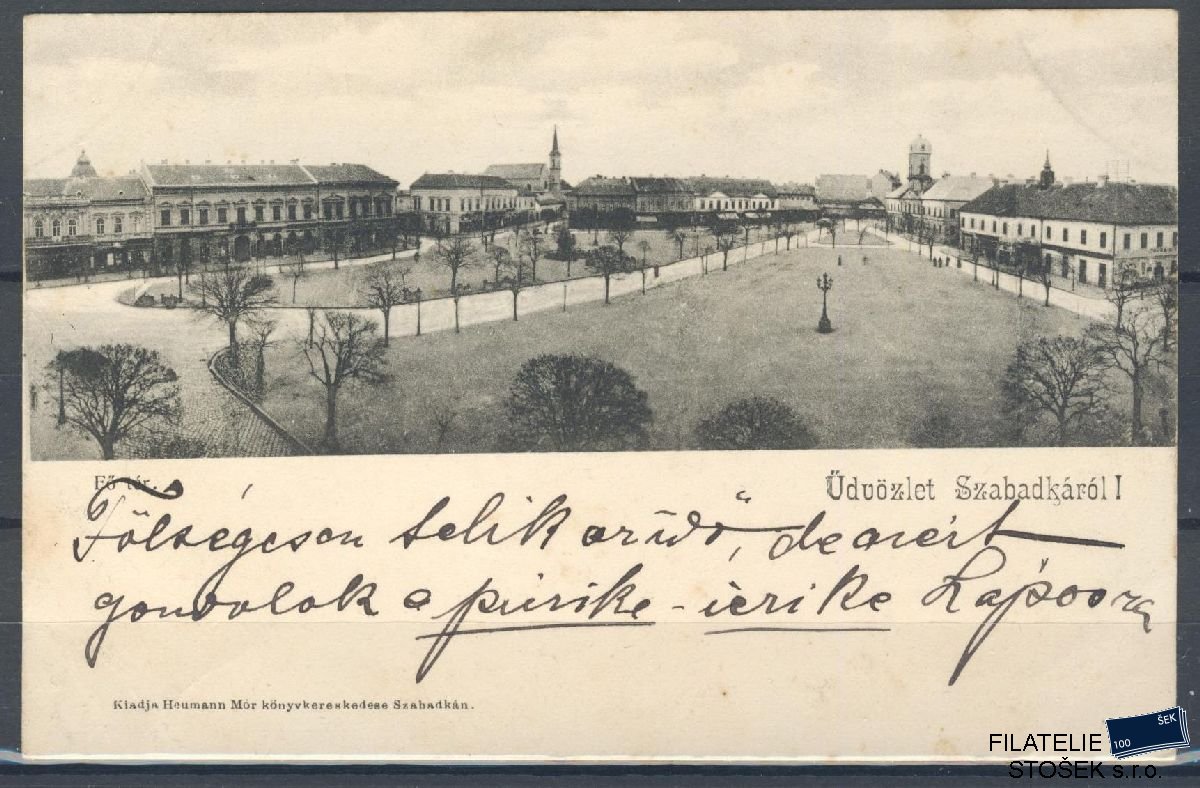 Fő tér.
Üdvözlet Szabadkáról!
Fölségesen telik az idő, de azért
gondolok a pirike - Kapóora
Kiadja Heumann Mór könyvkereskedese Szabadkán.
ŠEK
100
FILATELIE
STOŠEK s.r.o.